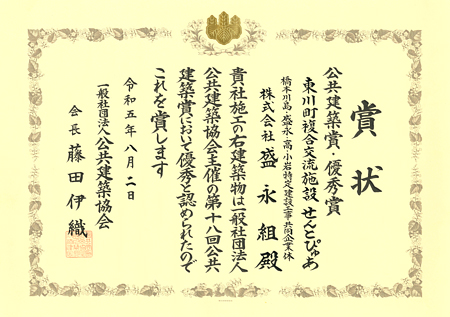 賞状
公共建築賞・優秀賞
東川町複合交流施設 せんとぴゅあ
橋本川島・盛永・高・小岩特定建設工事共同企業体
株式会社 盛永組 殿
貴社施工の右建築物は一般社団法人
公共建築協会主催の第十八回公共
建築賞において優秀と認められたので
これを賞します
令和五年八月二日
一般社団法人公共建築協会
会長 藤田伊織